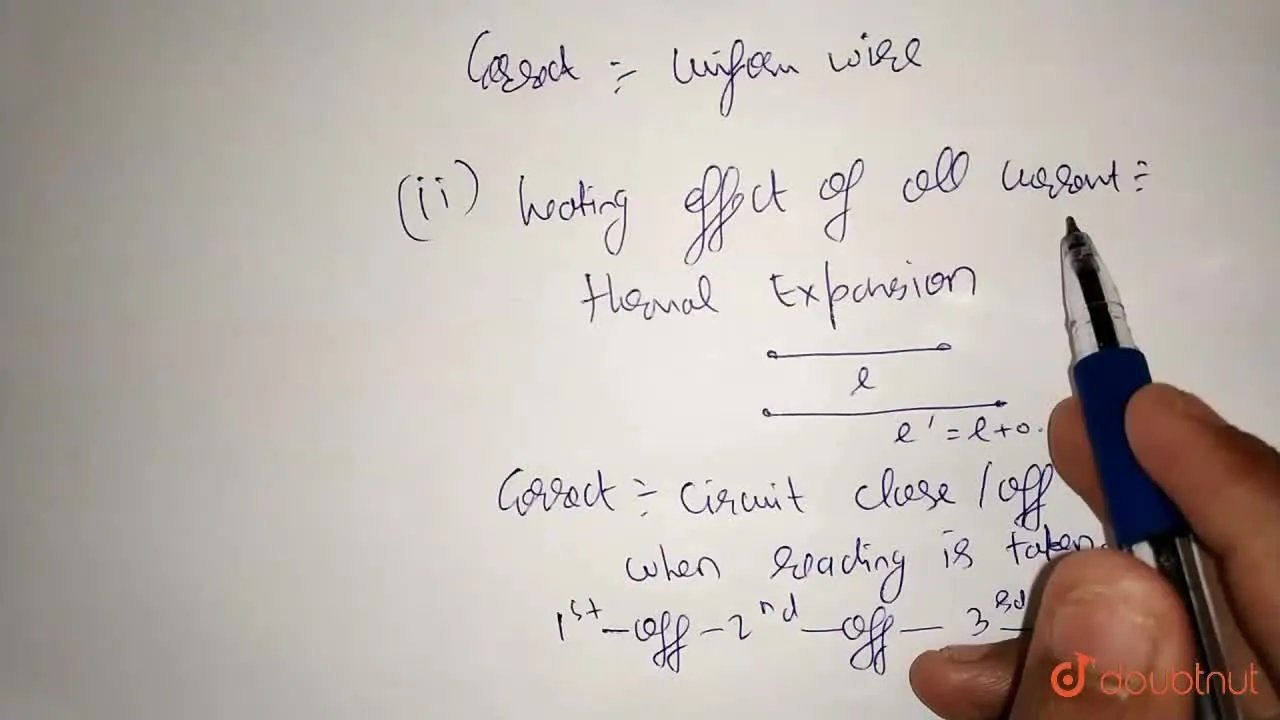 Correct ÷ Uniform wire
(ii) heating effect of all current ÷
thermal Expansion
l
l' = l + 0.
Correct ÷ Circuit close / off
when reading is taken
1st – off – 2nd – off – 3rd –
doubtnut